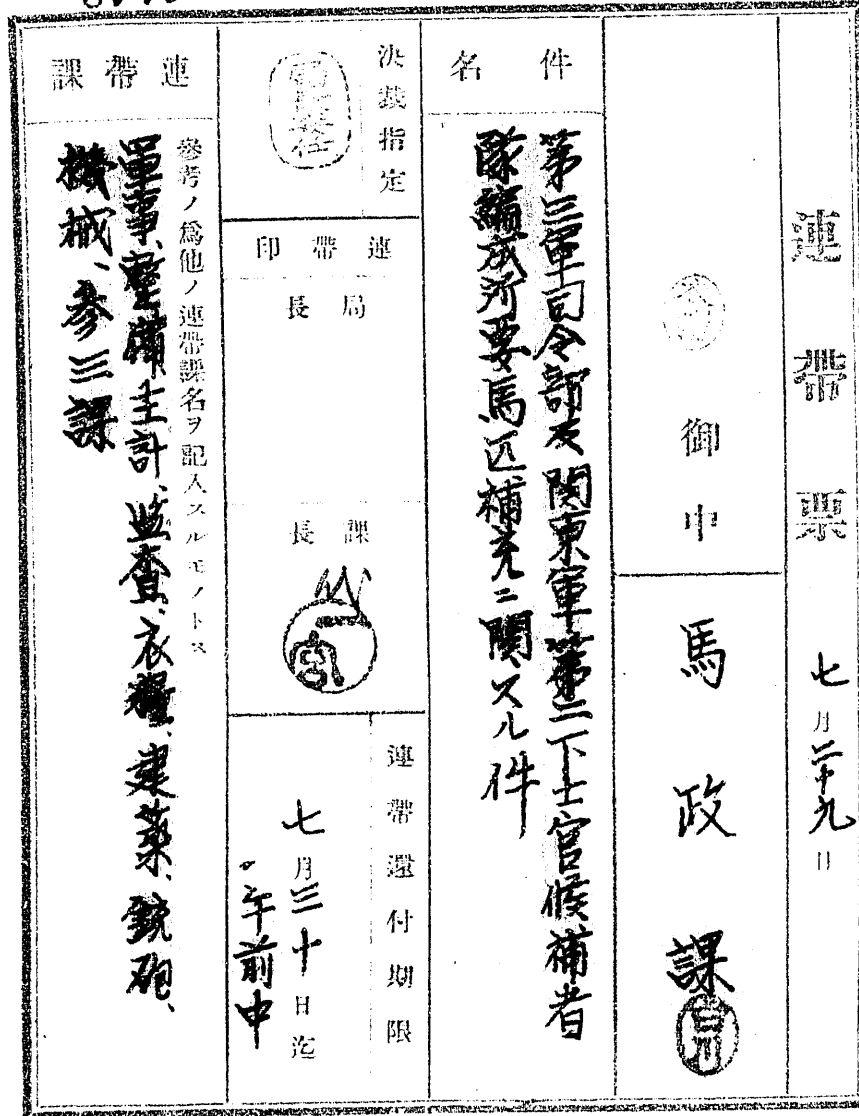 連帶票 七月二十九日
御中
馬政課
件名
第三軍司令部及関東軍第二下士官候補者
隊編成所要馬匹補充ニ関スル件
決裁指定
連帶印
局長
課長
連帶還付期限
七月三十日迄
午前中
連帶課
參考ノ爲他ノ連帶課名ヲ記入スルモノトス
軍事、整備、主計、監査、衣糧、建築、銃砲、
機械、参三課